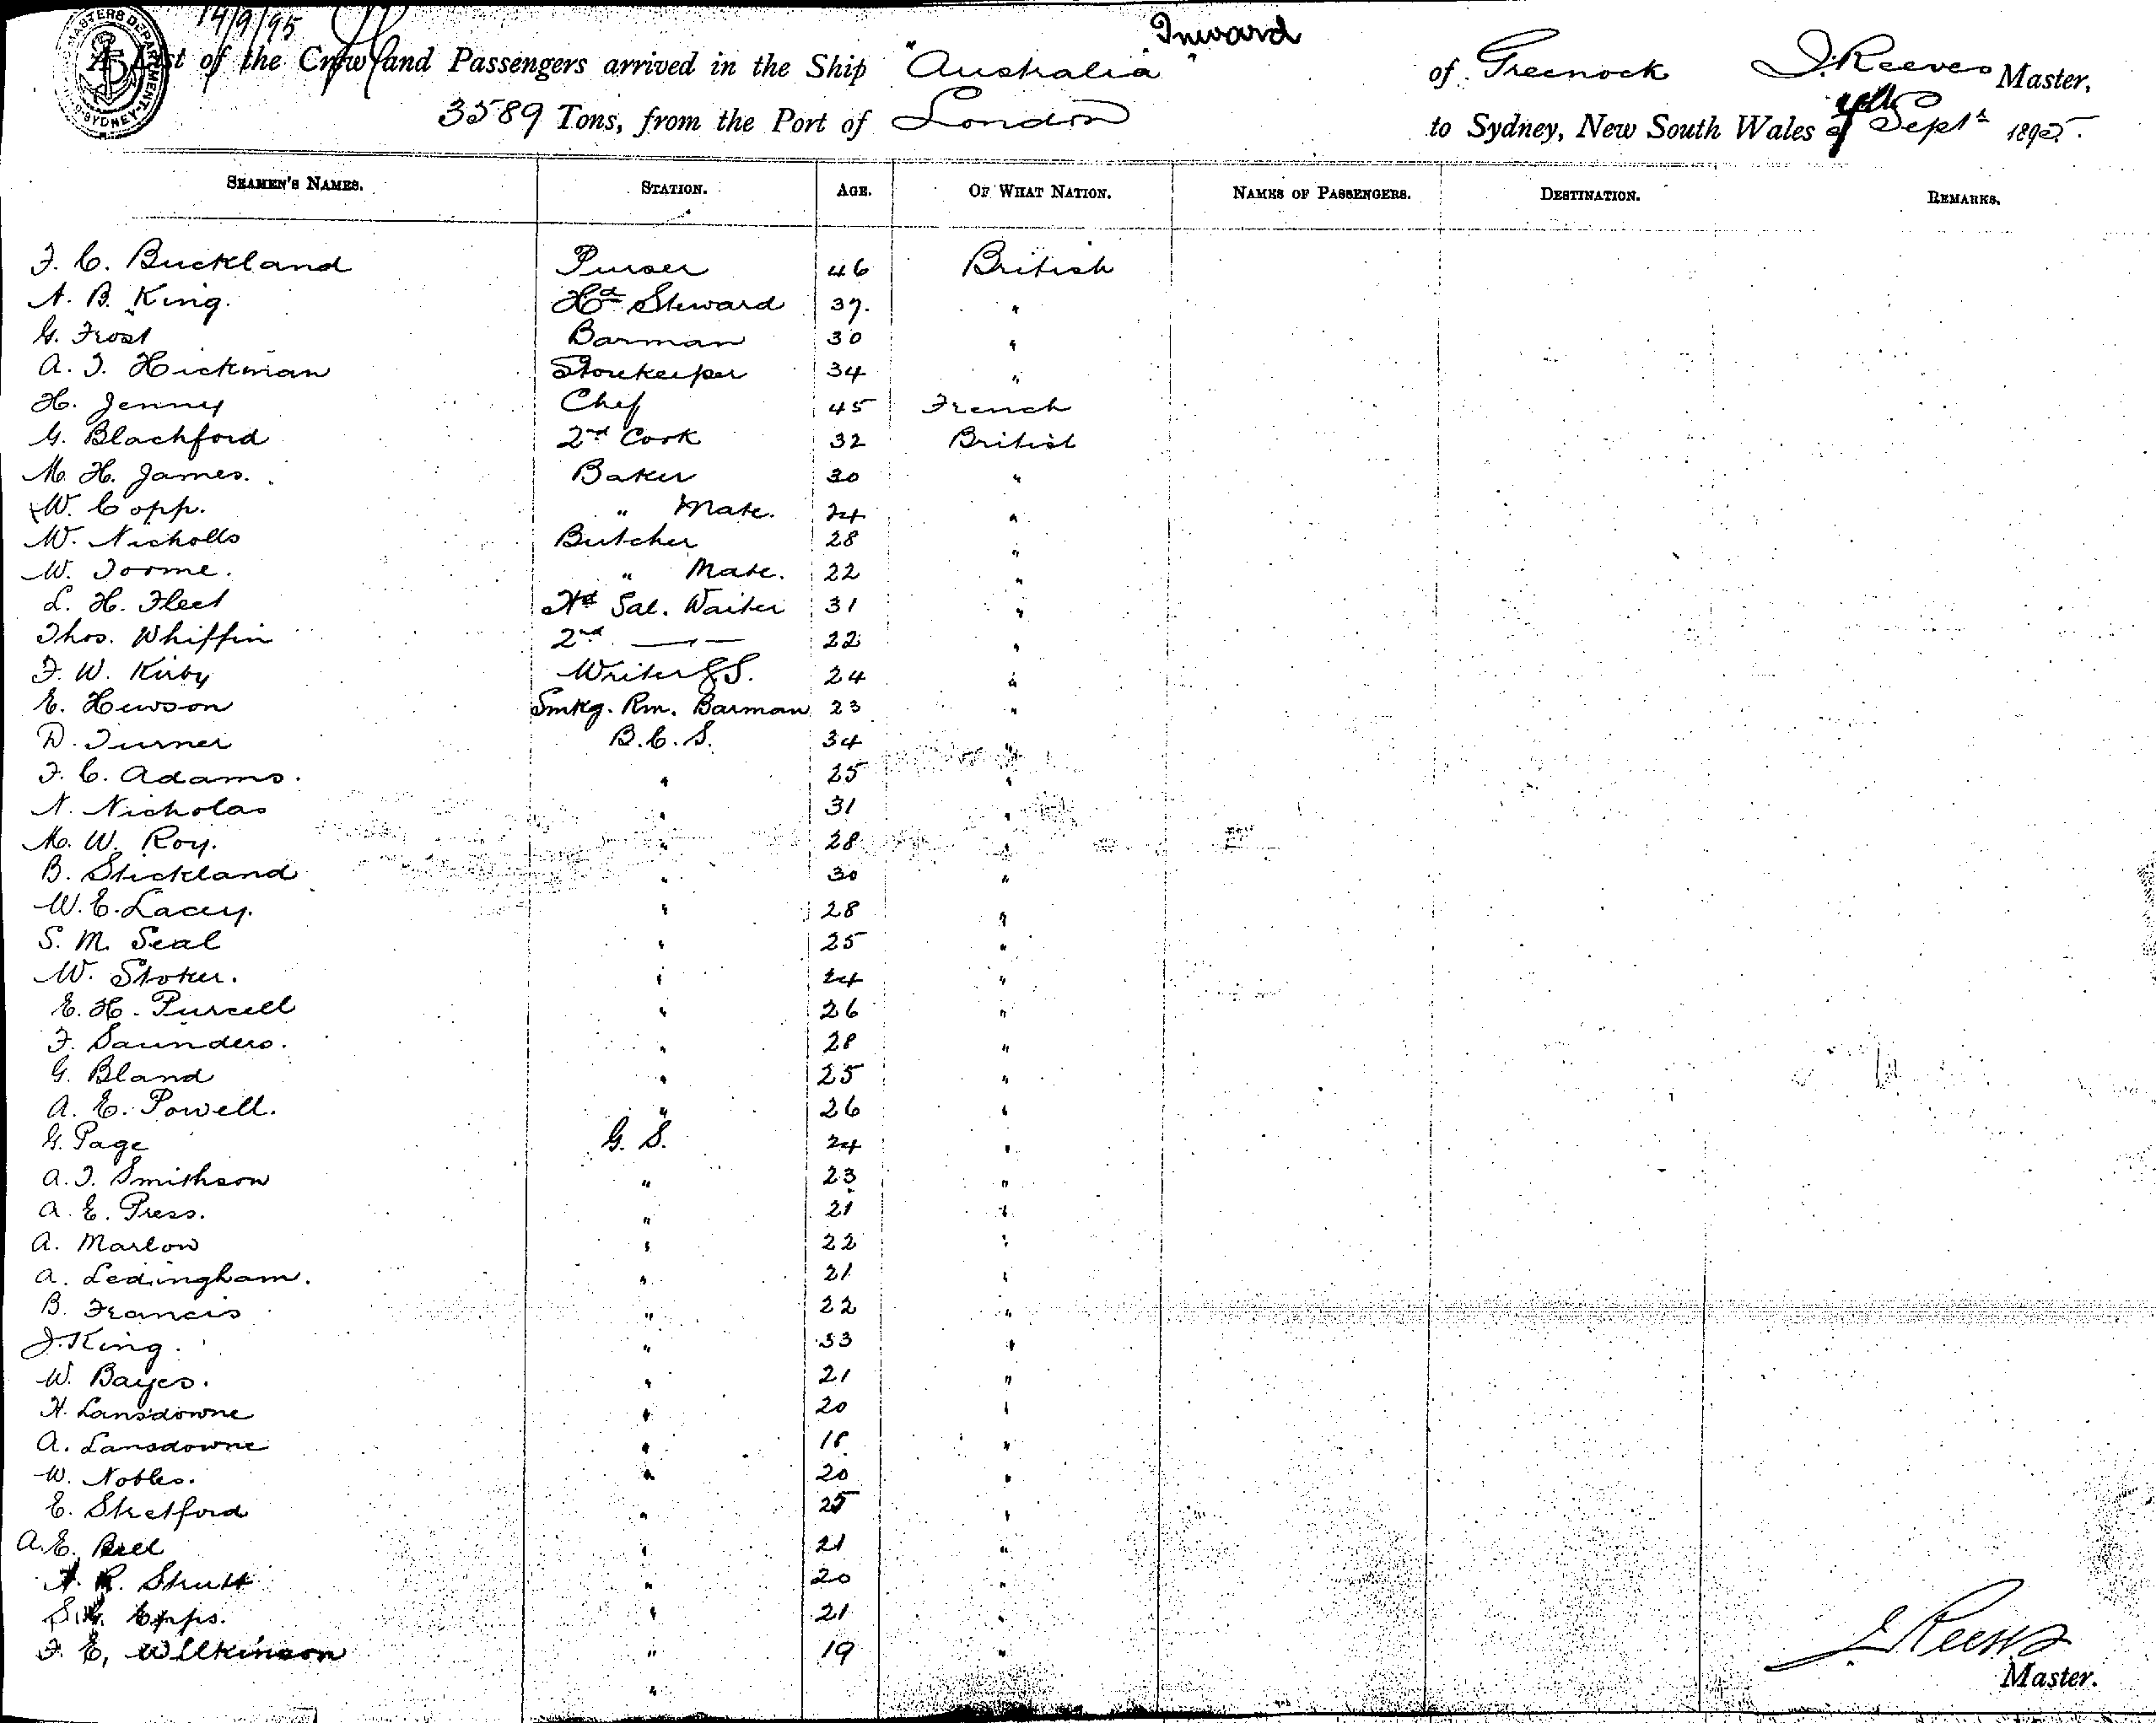 14/9/95
MASTERS DEPARTMENT SYDNEY
Inward
A List of the Crew and Passengers arrived in the Ship "Australia" of Greenock J. Reeves Master,
3589 Tons, from the Port of London to Sydney, New South Wales Sept 1895.
SEAMEN'S NAMES. STATION. AGE. OF WHAT NATION. NAMES OF PASSENGERS. DESTINATION. REMARKS.
F. C. Buckland Purser 46 British
A. B. King. Hd Steward 37. "
G. Frost Barman 30 "
A. T. Hickman Storekeeper 34 "
H. Jenny Chef 45 French
G. Blachford 2nd Cook 32 British
M. H. James. Baker 30 "
W. Copp. " Mate. 24 "
W. Nicholls Butcher 28 "
W. Toome. " Mate. 22 "
L. H. Fleet Hd Sal. Waiter 31 "
Thos. Whiffin 2nd —"— 22 "
F. W. Kirby Writer G.S. 24 "
E. Hewson Smkg. Rm. Barman 23 "
D. Turner B.C.S. 34 "
F. C. Adams. " 25 "
N. Nicholas " 31 "
M. W. Roy. " 28 "
B. Stickland " 30 "
W. E. Lacey. " 28 "
S. M. Seal " 25 "
W. Stoker. " 24 "
E. H. Purcell " 26 "
F. Saunders. " 28 "
G. Bland " 25 "
A. E. Powell. " 26 "
G. Page G. S. 24 "
A. T. Smithson " 23 "
A. E. Press. " 21 "
A. Marlow " 22 "
A. Ledingham. " 21 "
B. Francis " 22 "
J. King. " 33 "
W. Bayes. " 21 "
H. Lansdowne " 20 "
A. Lansdowne " 18 "
W. Nobles. " 20 "
E. Stretford " 25 "
A. E. Bell " 21 "
R. Shutt " 20 "
S. Epps. " 21 "
F. E. Wilkinson " 19 "
"
J Reeves
Master.